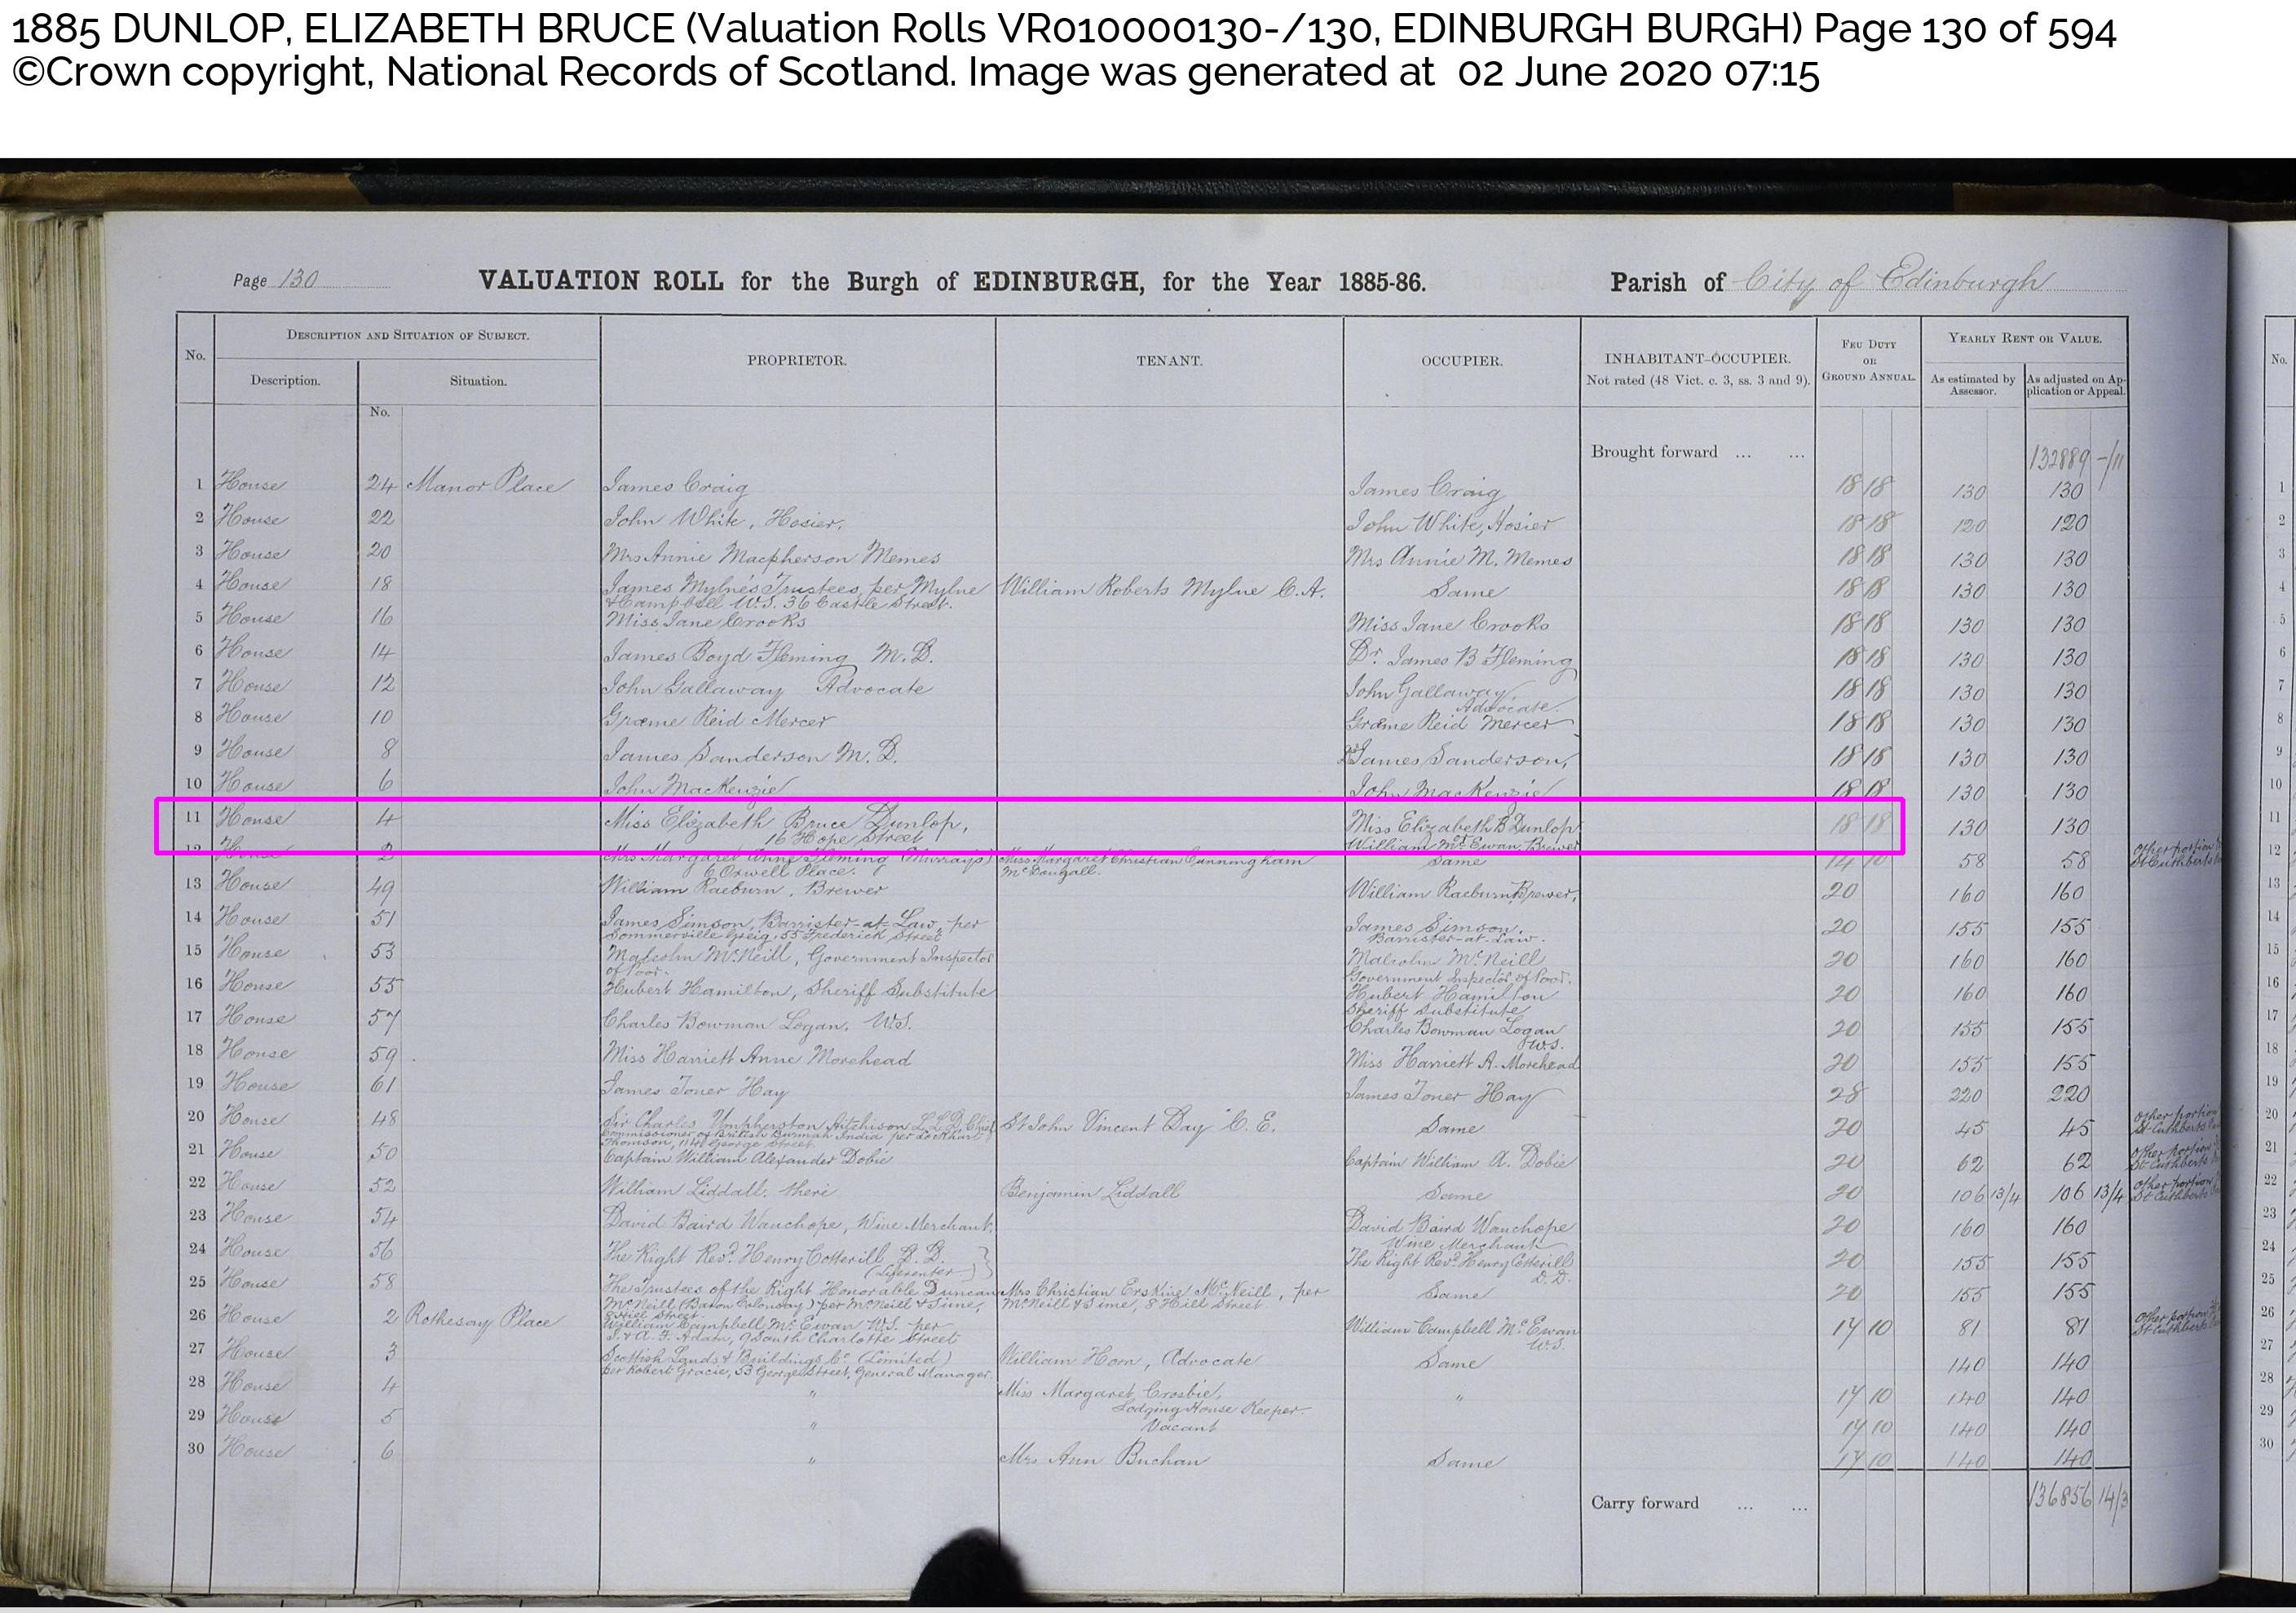 1885 DUNLOP, ELIZABETH BRUCE (Valuation Rolls VR010000130-/130, EDINBURGH BURGH) Page 130 of 594
©Crown copyright, National Records of Scotland. Image was generated at 02 June 2020 07:15
Page 130 VALUATION ROLL for the Burgh of EDINBURGH, for the Year 1885-86. Parish of City of Edinburgh
No. DESCRIPTION AND SITUATION OF SUBJECT. PROPRIETOR. TENANT. OCCUPIER. INHABITANT-OCCUPIER. FEU DUTY OR GROUND ANNUAL. YEARLY RENT OR VALUE. No.
Description. Situation. Not rated (48 Vict. c. 3, ss. 3 and 9). As estimated by Assessor. As adjusted on Application or Appeal.
No.
Brought forward ... ... 132889 -/11
1 House 24 Manor Place James Craig James Craig 18 18 130 130 1
2 House 22 John White, Hosier. John White, Hosier 18 18 120 120 2
3 House 20 Mrs Annie Macpherson Memes Mrs Annie M. Memes 18 18 130 130 3
4 House 18 James Mylne's Trustees, per Mylne William Roberts Mylne C.A. Same 18 18 130 130 4
& Campbell W.S. 36 Castle Street.
5 House 16 Miss Jane Crooks Miss Jane Crooks 18 18 130 130 5
6 House 14 James Boyd Fleming M.D. Dr. James B Fleming 18 18 130 130 6
7 House 12 John Gallaway Advocate John Gallaway, 18 18 130 130 7
Advocate.
8 House 10 Græme Reid Mercer Græme Reid Mercer 18 18 130 130 8
9 House 8 James Sanderson M.D. Dr James Sanderson, 18 18 130 130 9
10 House 6 John MacKenzie John MacKenzie 18 18 130 130 10
11 House 4 Miss Elizabeth Bruce Dunlop, Miss Elizabeth B Dunlop 18 18 130 130 11
16 Hope Street William McEwan, Brewer
12 House 2 Mrs Margaret Anne Fleming (Murray's) Miss Margaret Christian Cunningham Same 14 10 58 58 other portion 12
6 Orwell Place. McDougall. St Cuthberts
13 House 49 William Raeburn, Brewer William Raeburn, Brewer, 20 160 160 13
14 House 51 James Simson, Barrister-at-Law, per James Simson, 20 155 155 14
Sommerville Greig, 55 Frederick Street Barrister-at-Law.
15 House 53 Malcolm McNeill, Government Inspector Malcolm McNeill 20 160 160 15
of Poor. Government Inspector of Poor.
16 House 55 Hubert Hamilton, Sheriff Substitute Hubert Hamilton 20 160 160 16
Sheriff Substitute
17 House 57 Charles Bowman Logan. W.S. Charles Bowman Logan 20 155 155 17
W.S.
18 House 59 Miss Harriett Anne Morehead Miss Harriett A. Morehead 20 155 155 18
19 House 61 James Toner Hay James Toner Hay 28 220 220 19
20 House 48 Sir Charles Umpherston Aitchison L.L.D. Chief St John Vincent Day C.E. Same 20 45 45 other portion 20
Commissioner of British Burmah India per Lockhart St Cuthberts
Thomson, 114 George Street.
21 House 50 Captain William Alexander Dobie Captain William A. Dobie 20 62 62 other portion 21
St Cuthberts
22 House 52 William Liddall, there Benjamin Liddall Same 20 106 13/4 106 13/4 other portion 22
St Cuthberts
23 House 54 David Baird Wauchope, Wine Merchant. David Baird Wauchope 20 160 160 23
Wine Merchant
24 House 56 The Right Revd. Henry Cotterill, D.D. The Right Revd. Henry Cotterill 20 155 155 24
(Liferenter) D.D.
25 House 58 The Trustees of the Right Honorable Duncan Mrs Christian Erskine McNeill, per Same 20 155 155 25
McNeill (Baron Colonsay) per McNeill & Sime, McNeill & Sime, 8 Hill Street
8 Hill Street.
26 House 2 Rothesay Place William Campbell McEwan W.S. per William Campbell McEwan 17 10 81 81 other portion 26
J. & A. F. Adam, 9 South Charlotte Street W.S. St Cuthberts
27 House 3 Scottish Lands & Buildings Co. (Limited) William Horn, Advocate Same 140 140 27
per Robert Gracie, 53 George Street, General Manager.
28 House 4 " Miss Margaret Crosbie, " 17 10 140 140 28
Lodging House Keeper.
29 House 5 " Vacant 17 10 140 140 29
30 House 6 " Mrs Ann Buchan Same 17 10 140 140 30
Carry forward ... ... 136856 14/3